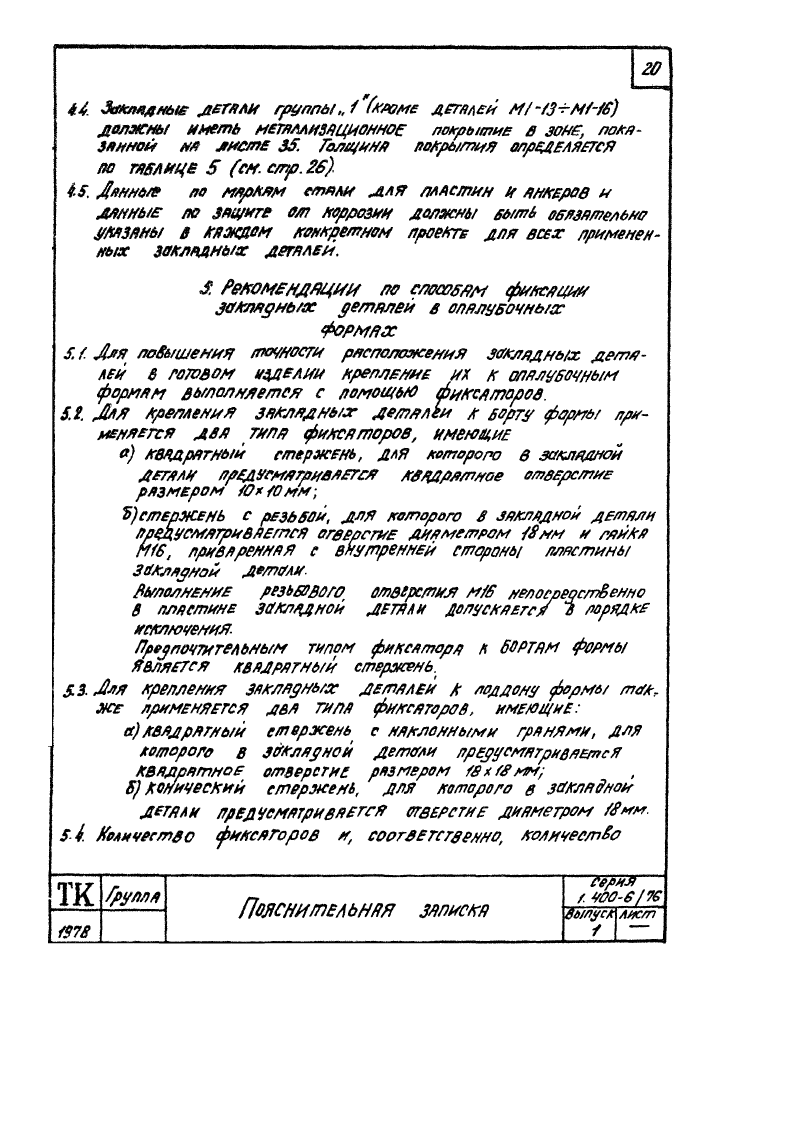 20
4.4. Закладные детали группы „1" (кроме деталей М1-13÷М1-16)
должны иметь металлизационное покрытие в зоне, пока-
занной на листе 35. Толщина покрытия определяется
по таблице 5 (см. стр. 26).
4.5. Данные по маркам стали для пластин и анкеров и
данные по защите от коррозии должны быть обязательно
указаны в каждом конкретном проекте для всех применен-
ных закладных деталей.
5. Рекомендации по способам фиксации
закладных деталей в опалубочных
формах
5.1. Для повышения точности расположения закладных дета-
лей в готовом изделии крепление их к опалубочным
формам выполняется с помощью фиксаторов.
5.2. Для крепления закладных деталей к борту формы при-
меняется два типа фиксаторов, имеющие
а) квадратный стержень, для которого в закладной
детали предусматривается квадратное отверстие
размером 10×10 мм;
б) стержень с резьбой, для которого в закладной детали
предусматривается отверстие диаметром 18 мм и гайка
М16, приваренная с внутренней стороны пластины
закладной детали.
Выполнение резьбового отверстия М16 непосредственно
в пластине закладной детали допускается в порядке
исключения.
Предпочтительным типом фиксатора к бортам формы
является квадратный стержень.
5.3. Для крепления закладных деталей к поддону формы так-
же применяется два типа фиксаторов, имеющие:
а) квадратный стержень с наклонными гранями, для
которого в закладной детали предусматривается
квадратное отверстие размером 18×18 мм;
б) конический стержень, для которого в закладной
детали предусматривается отверстие диаметром 18 мм.
5.4. Количество фиксаторов и, соответственно, количество
ТК Группа
1978
Пояснительная записка
серия
1.400-6/76
Выпуск лист
1 —